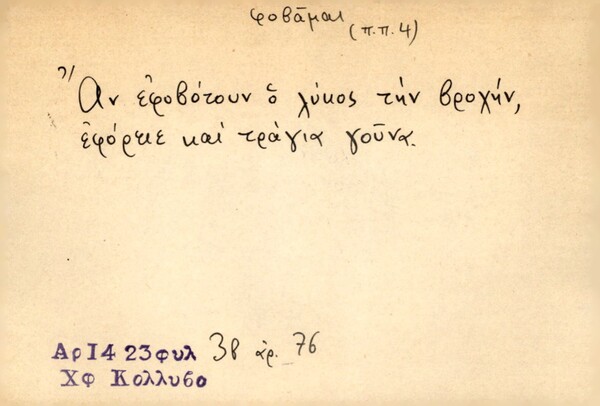 φοβᾶμαι
(π.π.4)
Ἂν ἐφοβότουν ὁ λύκος τὴν βροχήν,
ἐφόρειε καὶ τράγια γοῦνα.
Αρ14 23φυλ 38 ἀρ. 76
Χφ Κολλυβο